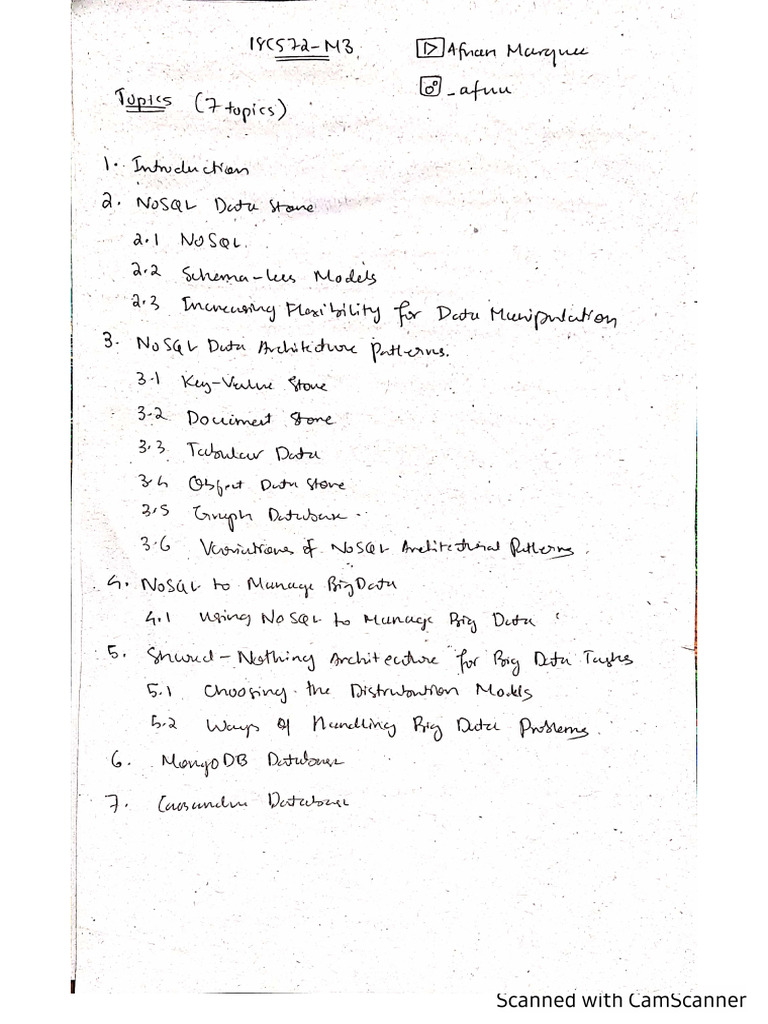 18CS72-M3
Afnan Marquee
_afnu
Topics (7 topics)
1. Introduction
2. NoSQL Data Store
2.1 NoSQL
2.2 Schema-less Models
2.3 Increasing Flexibility for Data Manipulation
3. NoSQL Data Architecture Patterns.
3.1 Key-Value Store
3.2 Document Store
3.3 Tabular Data
3.4 Object Data Store
3.5 Graph Database
3.6 Variations of NoSQL Architectural Patterns.
4. NoSQL to Manage Big Data
4.1 Using NoSQL to Manage Big Data
5. Shared-Nothing Architecture for Big Data Tasks
5.1 Choosing the Distribution Models
5.2 Ways of Handling Big Data Problems.
6. MongoDB Database
7. Cassandra Database
Scanned with CamScanner